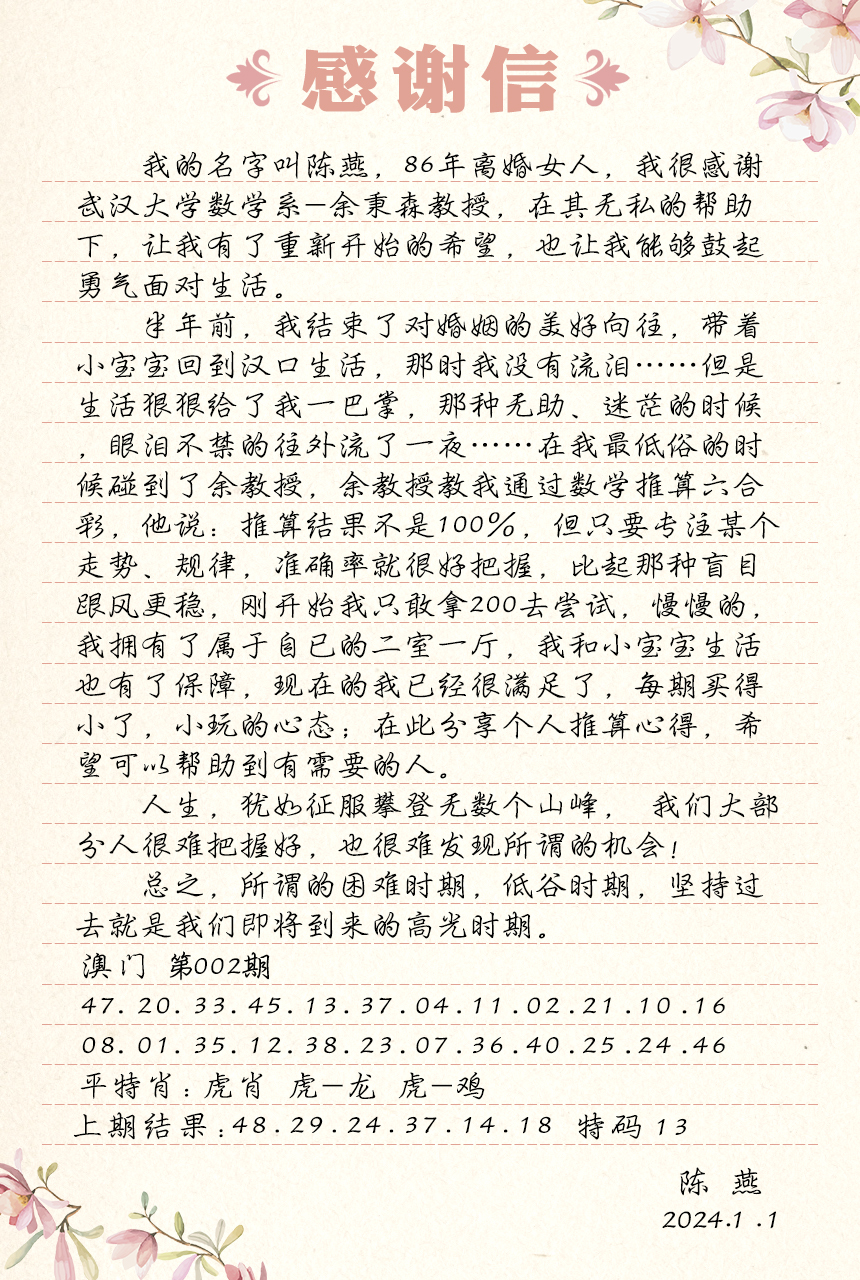 感谢信
我的名字叫陈燕，86年离婚女人，我很感谢
武汉大学数学系—余秉森教授，在其无私的帮助
下，让我有了重新开始的希望，也让我能够鼓起
勇气面对生活。
半年前，我结束了对婚姻的美好向往，带着
小宝宝回到汉口生活，那时我没有流泪……但是
生活狠狠给了我一巴掌，那种无助、迷茫的时候
，眼泪不禁的往外流了一夜……在我最低俗的时
候碰到了余教授，余教授教我通过数学推算六合
彩，他说：推算结果不是100%，但只要专注某个
走势、规律，准确率就很好把握，比起那种盲目
跟风更稳，刚开始我只敢拿200去尝试，慢慢的，
我拥有了属于自己的二室一厅，我和小宝宝生活
也有了保障，现在的我已经很满足了，每期买得
小了，小玩的心态；在此分享个人推算心得，希
望可以帮助到有需要的人。
人生，犹如征服攀登无数个山峰， 我们大部
分人很难把握好，也很难发现所谓的机会！
总之，所谓的困难时期，低谷时期，坚持过
去就是我们即将到来的高光时期。
澳门 第002期
47.20.33.45.13.37.04.11.02.21.10.16
08.01.35.12.38.23.07.36.40.25.24.46
平特肖：虎肖 虎—龙 虎—鸡
上期结果：48.29.24.37.14.18 特码13
陈 燕
2024.1.1